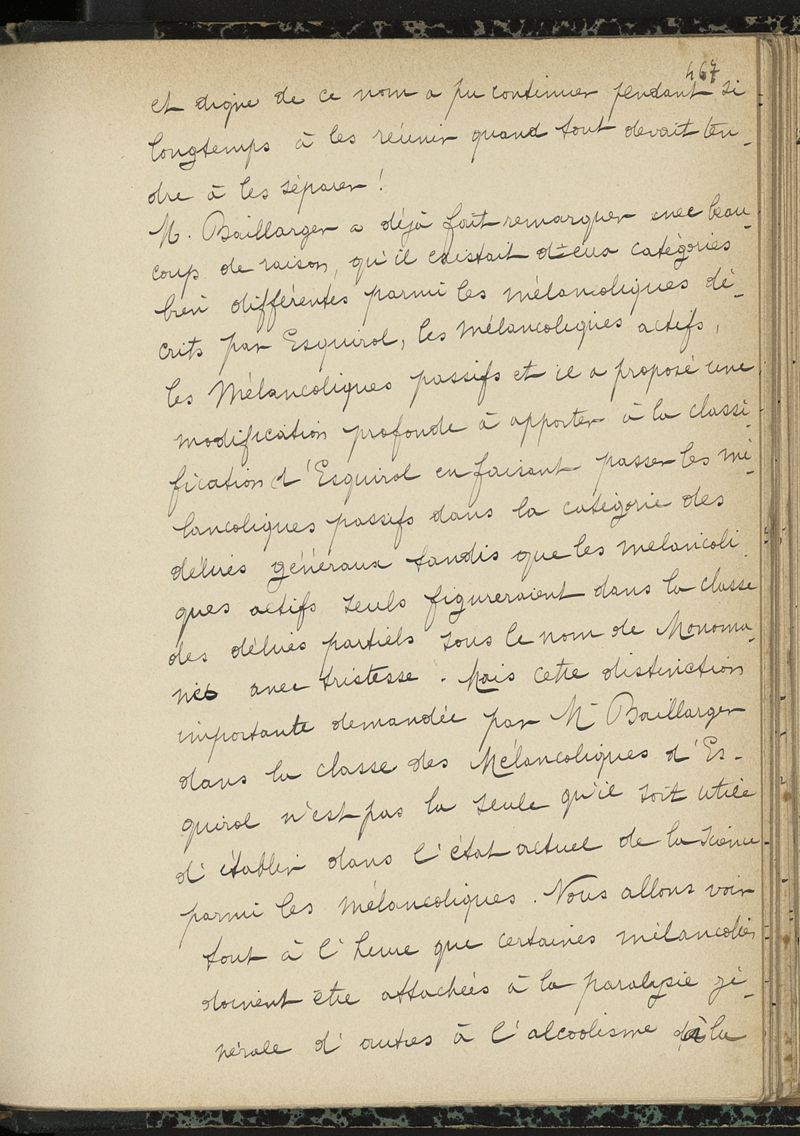 467
et digne de ce nom a pu continuer pendant si
longtemps à les réunir quand tout devait ten-
dre à les séparer !
M. Baillarger a déjà fait remarquer avec beau-
coup de raison, qu'il existait deux catégories
bien différentes parmi les mélancoliques dé-
crits par Esquirol, les mélancoliques actifs,
les Mélancoliques passifs et il a proposé une
modification profonde à apporter à la classi-
fication d'Esquirol en faisant passer les mé-
lancoliques passifs dans la catégorie des
délires généraux tandis que les melancoli-
ques actifs seuls figureraient dans la classe
des délires partiels sous le nom de Monoma-
nies avec tristesse. Mais cette distinction
importante demandée par Mr Baillarger
dans la classe des Mélancoliques d'Es-
quirol n'est pas la seule qu'il soit utile
d'établir dans l'état actuel de la Science
parmi les mélancoliques. Nous allons voir
tout à l'heure que certaines mélancolies
doivent être attachées à la paralysie gé-
nérale d'autres à l'alcoolisme à la